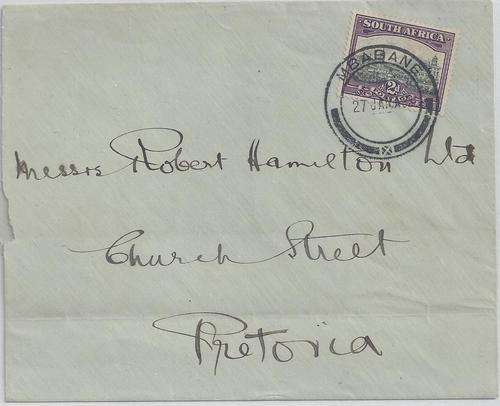 SOUTH AFRICA
MBABANE
2D
27 JAN
Messrs Robert Hamilton Ltd
Church Street
Pretoria